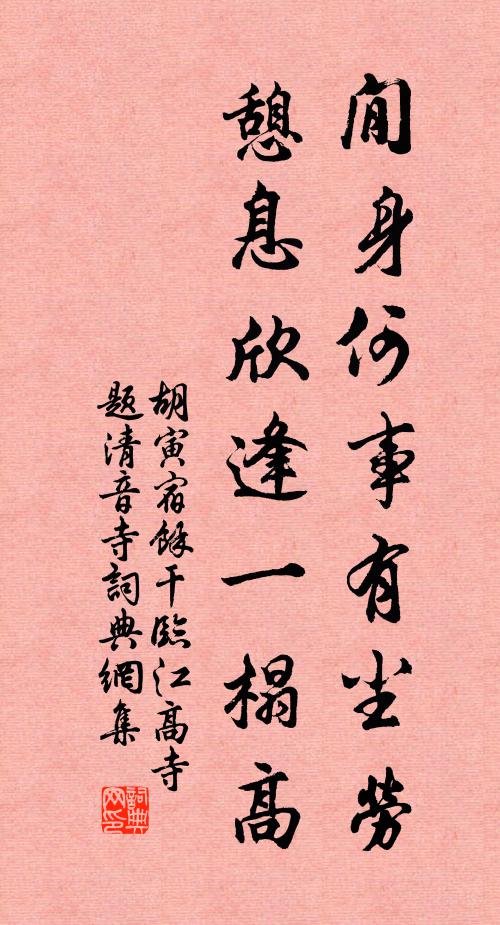 閒身何事有尘勞
憩息欣逢一榻高
胡寅宿餘干臨江高寺
題清音寺詞典網集
詞典网印